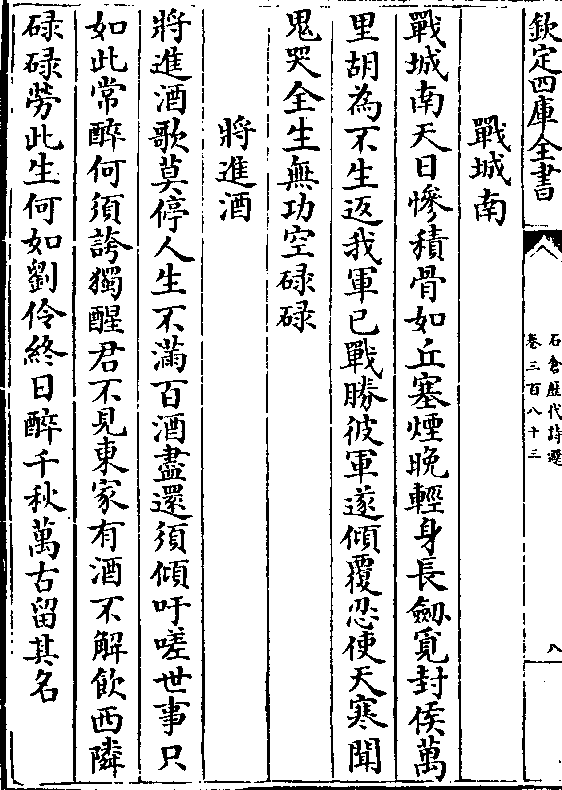 欽定四庫全書
石倉歴代詩選
卷三百八十三
八
戰城南
戰城南天日慘積骨如丘塞煙晚輕身長劔覓封侯萬
里胡為不生返我軍已戰勝彼軍遂傾覆忍使天寒聞
鬼哭全生無功空碌碌
將進酒
將進酒歌莫停人生不滿百酒盡還須傾吁嗟世事只
如此常醉何須誇獨醒君不見東家有酒不解飲西隣
碌碌勞此生何如劉伶終日醉千秋萬古留其名